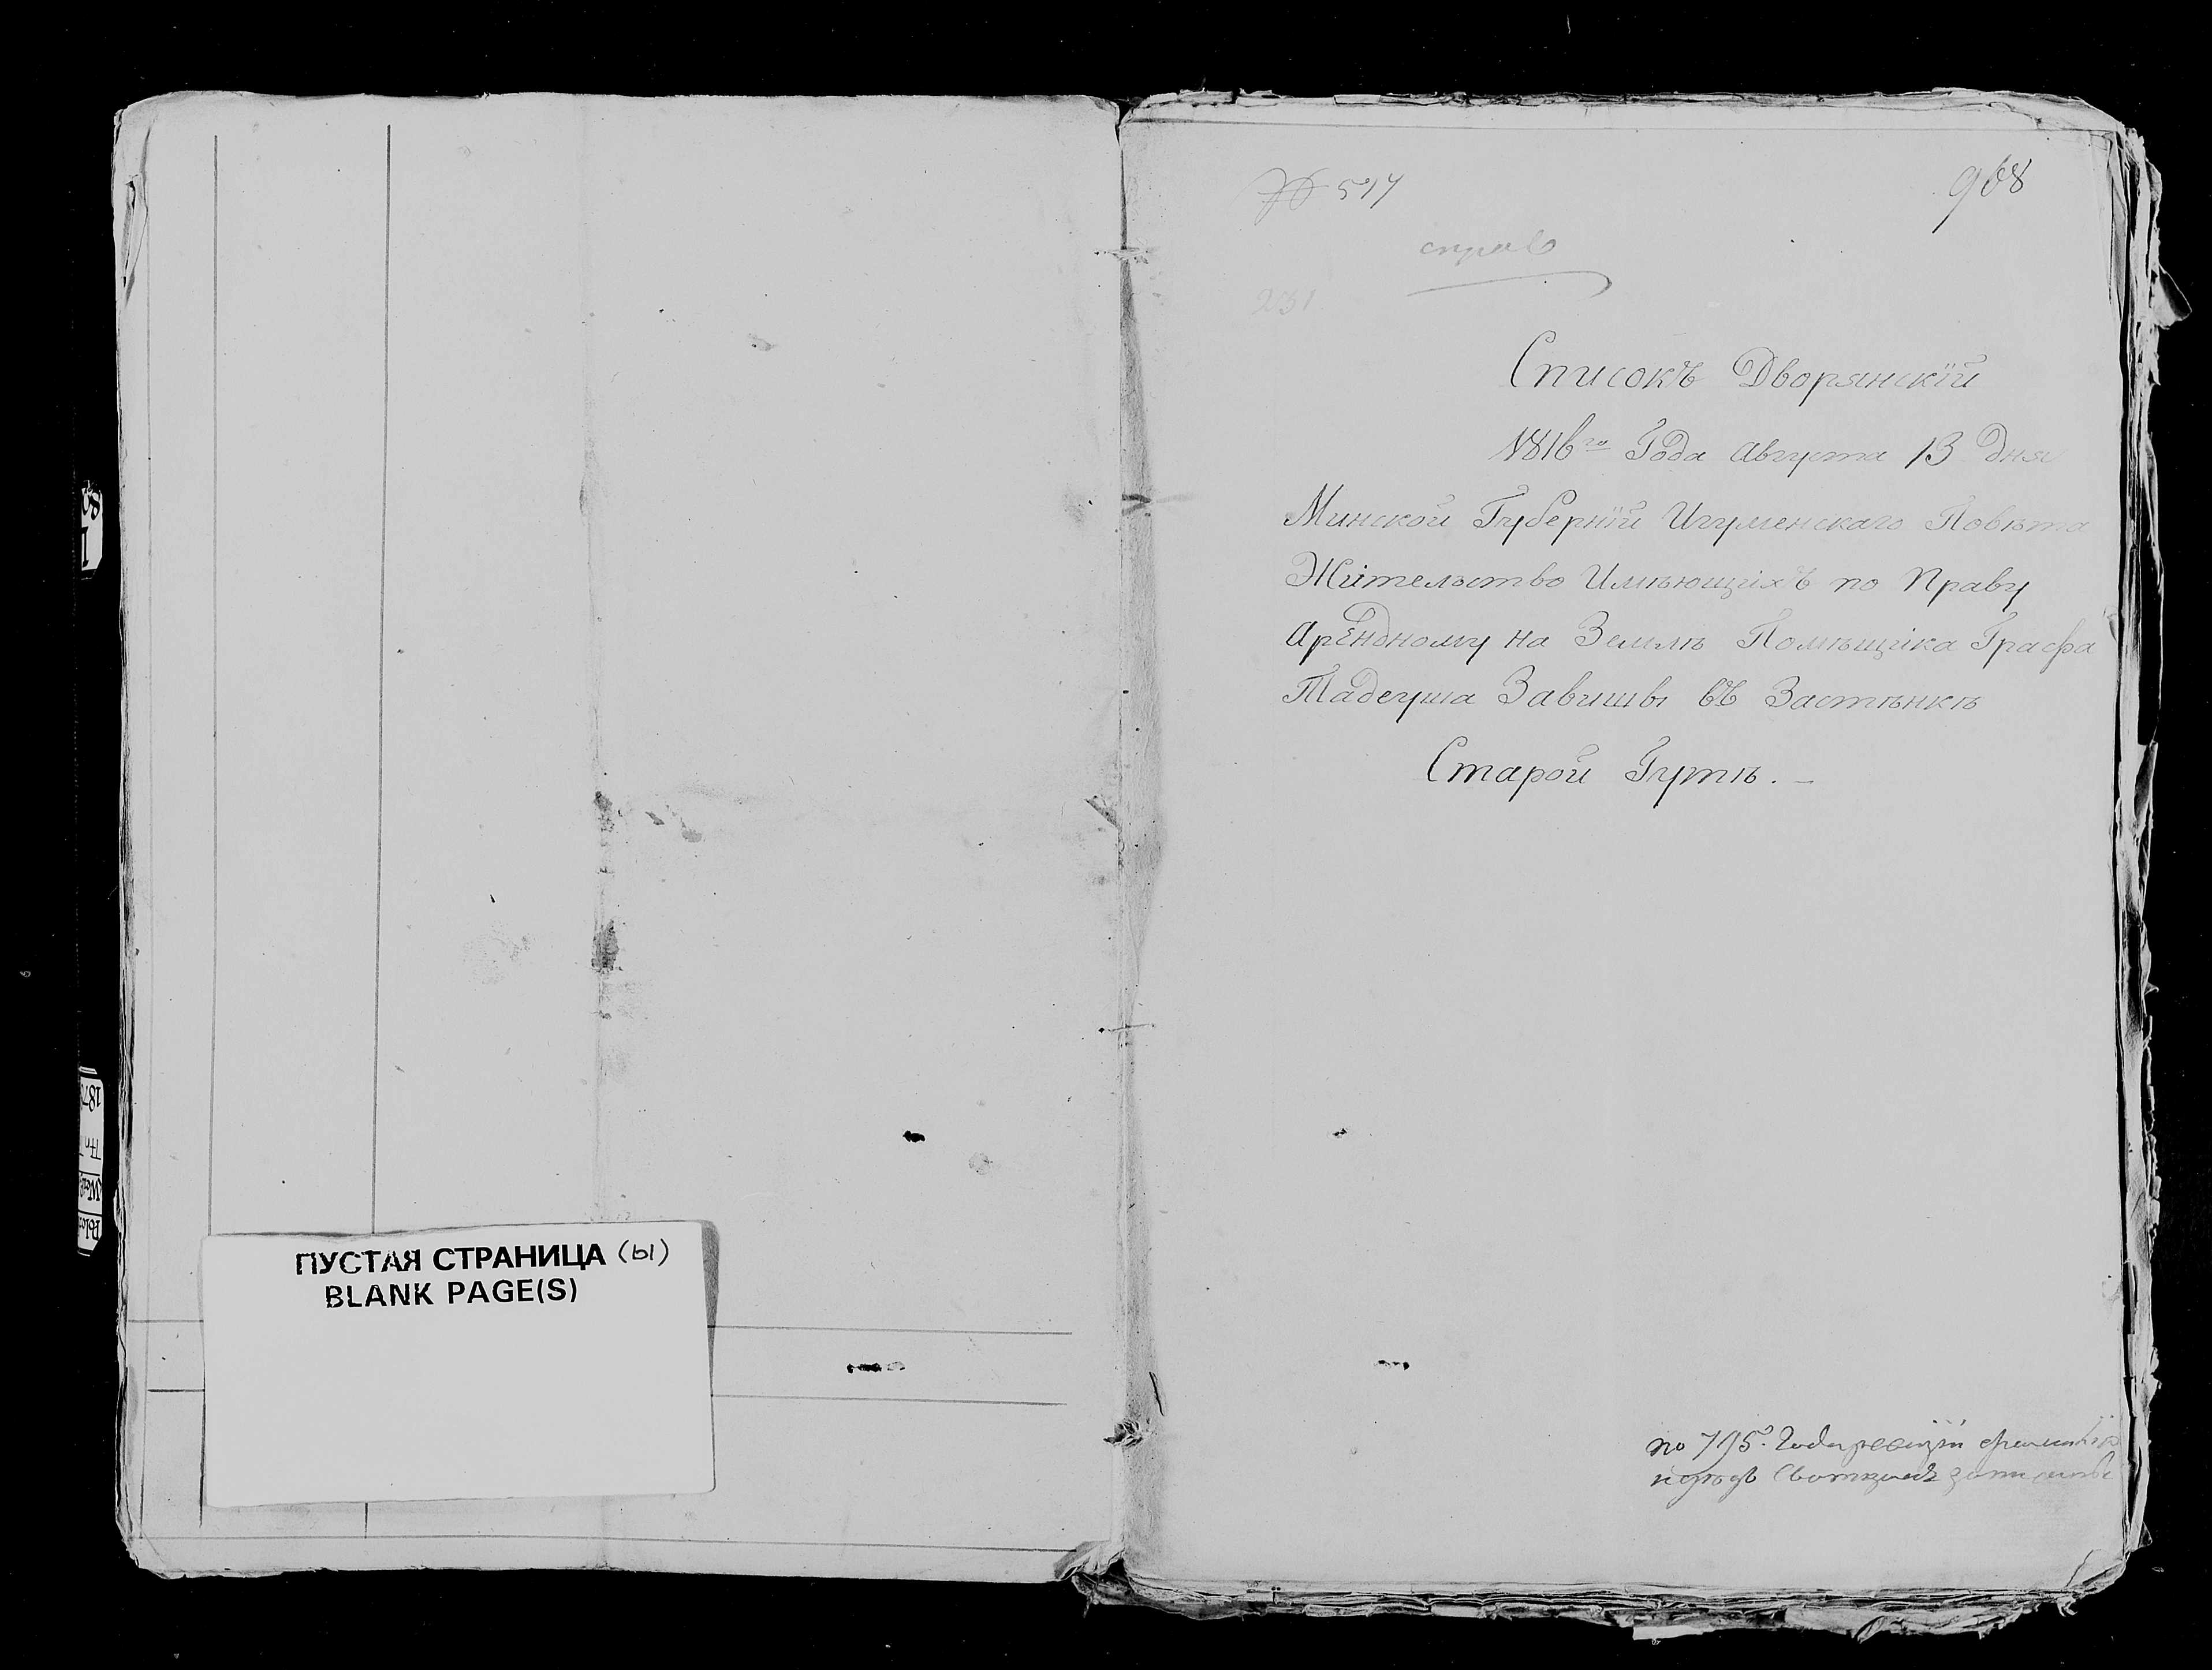 ПУСТАЯ СТРАНИЦА (ы)
BLANK PAGE(S)
№ 514
968
справ
231
Списокъ Дворянскій
1816го Года Августа 13 Дня
Минской Губерніи Игуменскаго Повѣта
Жительство Имѣющихъ по Праву
Арендному на Землѣ Помѣщика Графа
Тадеуша Завишы въ Застѣнкѣ
Старой Гутѣ. —
по 795. Года ревизіи